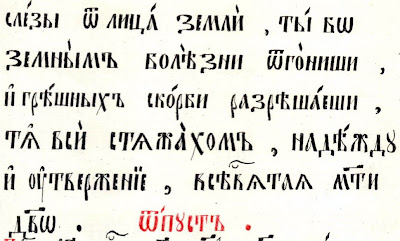 сле́зы ѿ лица̀ землѝ , ты́ бо
земны́мъ болѣ̑зни ѿго́ниши ,
и҆ грѣ́шныхъ ско́рби разрѣша́еши ,
тѧ̀ всѝ стѧжа́хомъ , наде́жду
и҆ ᲂу҆тверже́нїе , всест҃а́ѧ мт҃и
дв҃о . ѿпустъ .